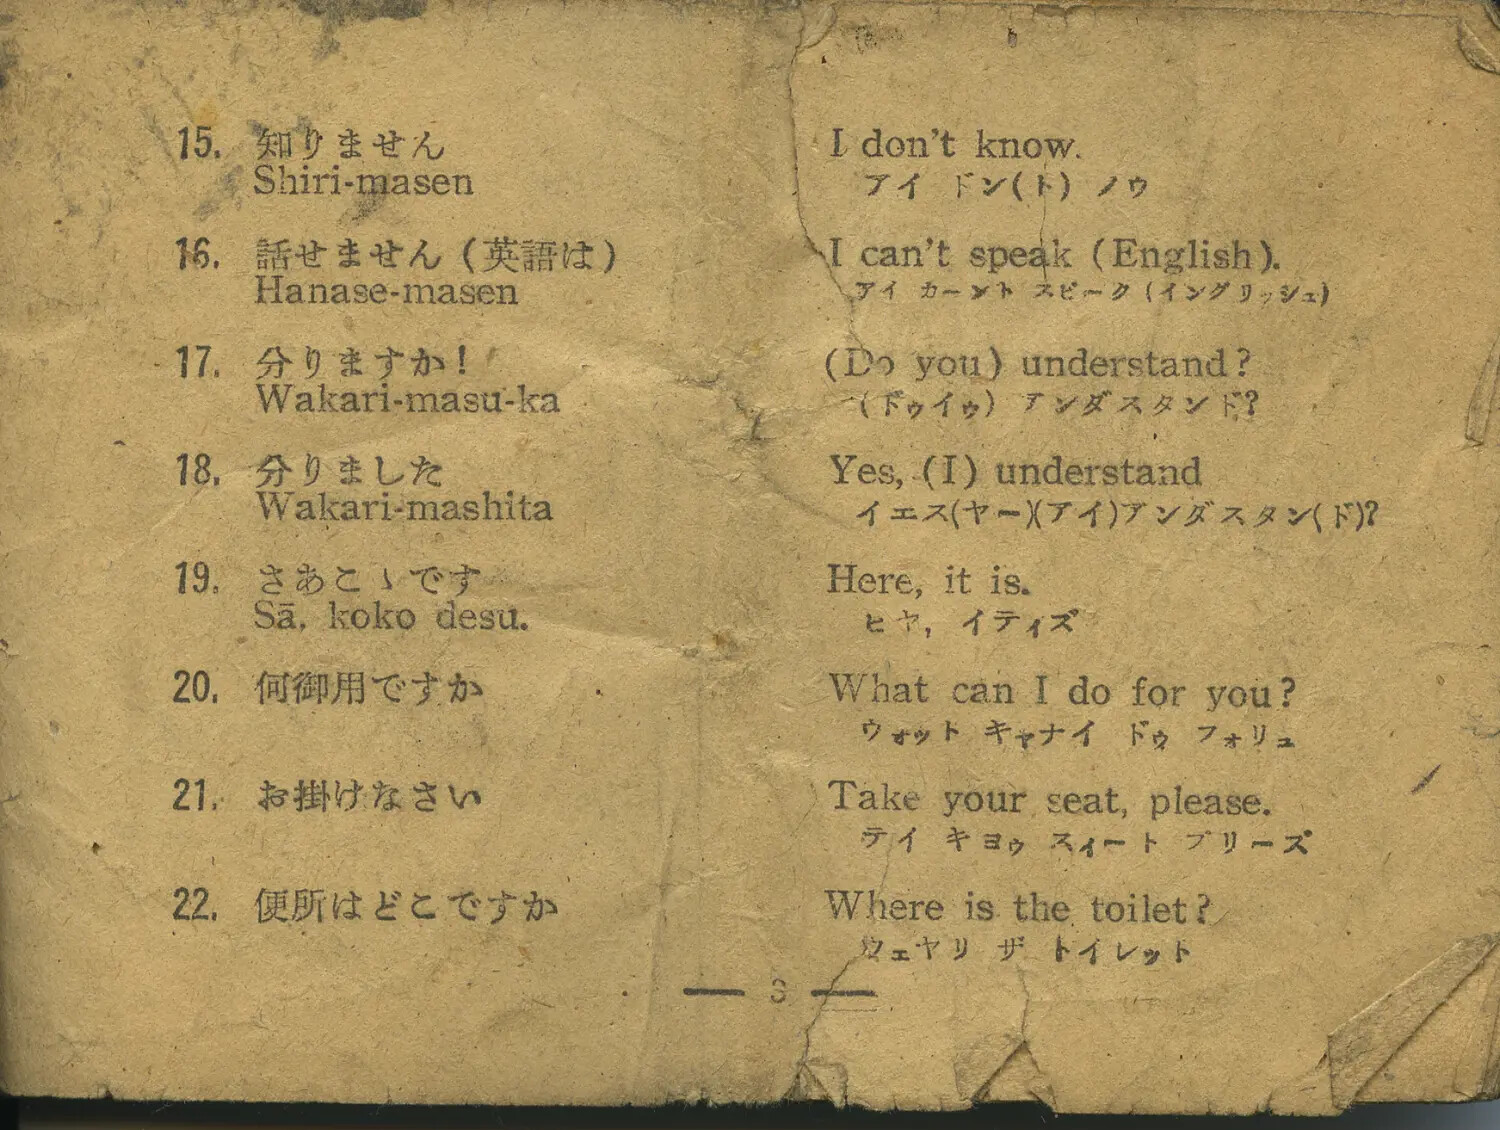 15. 知りません I don't know.
Shiri-masen アイ ドン(ト) ノウ
16. 話せません(英語は) I can't speak (English).
Hanase-masen アイ カーント スピーク(イングリッシュ)
17. 分りますか! (Do you) understand?
Wakari-masu-ka (ドゥイゥ) アンダスタンド?
18. 分りました Yes, (I) understand
Wakari-mashita イエス(ヤー)(アイ)アンダスタン(ド)?
19. さあこゝです Here, it is.
Sā, koko desu. ヒヤ, イティズ
20. 何御用ですか What can I do for you?
ウォット キャナイ ドゥ フォリュ
21. お掛けなさい Take your seat, please.
テイ キヨゥ スィート プリーズ
22. 便所はどこですか Where is the toilet?
ウェヤリ ザ トイレット
— 3 —